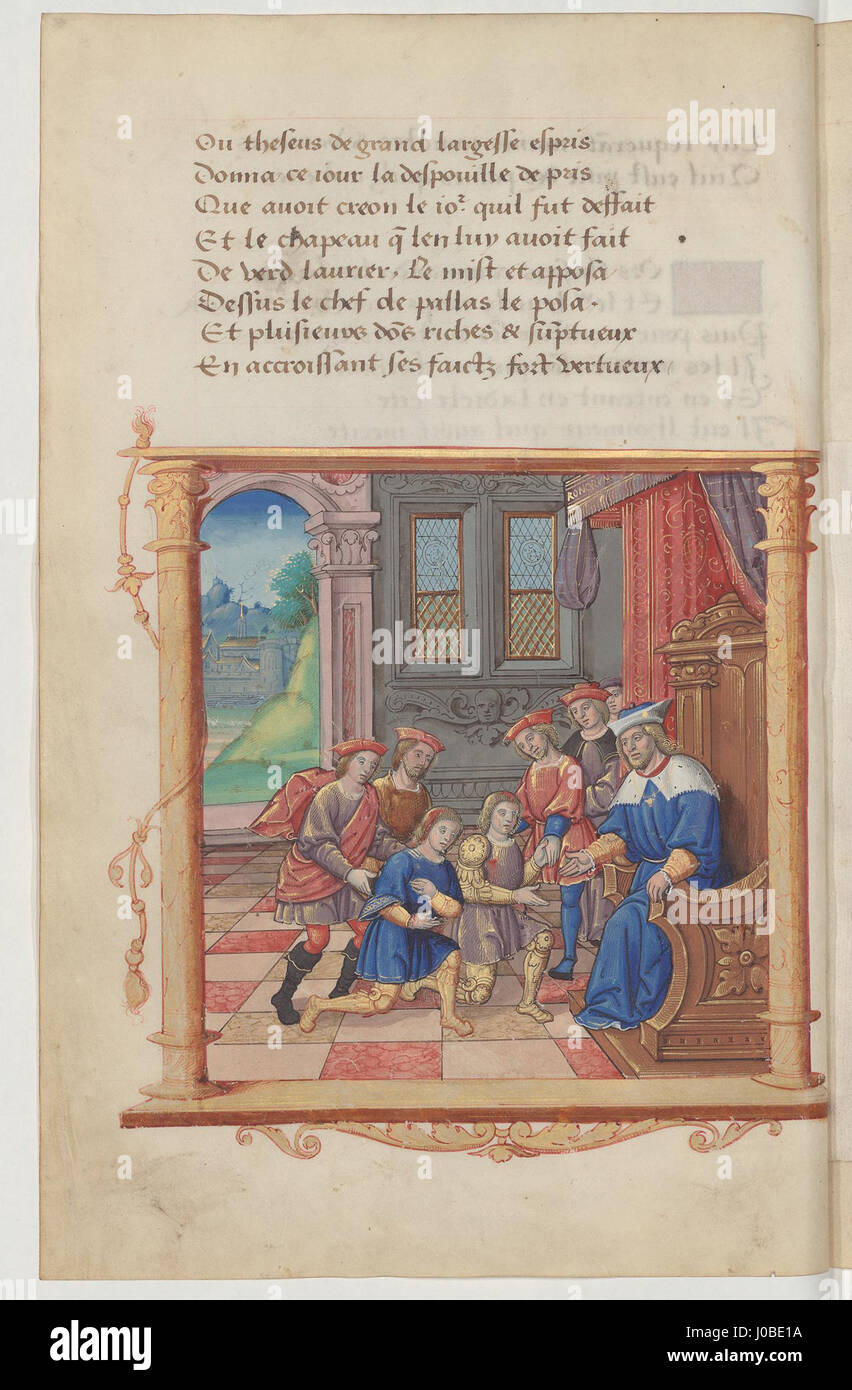 Ou theseus de grand largesse espris
Donna ce iour la despouille de pris
Que auoit creon le ior quil fut deffait
Et le chapeau q̃ len luy auoit fait
De verd laurier, Le mist et apposa
Dessus le chef de pallas le posa.
Et plusieurs dõs riches & sũptueux
En accroissant ses faictz fort vertueux
alamy
alamy
Image ID: J0BE1A
www.alamy.com